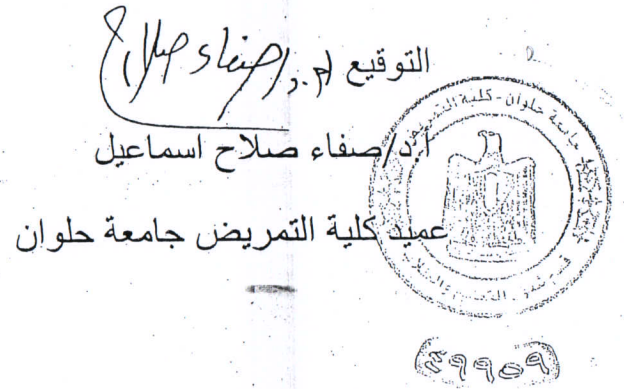 التوقيع ا.د/صفاء صلاح
ا.د/صفاء صلاح اسماعيل
عميد كلية التمريض جامعة حلوان
جامعة حلوان - كلية التمريض
٤٩٩٥٩